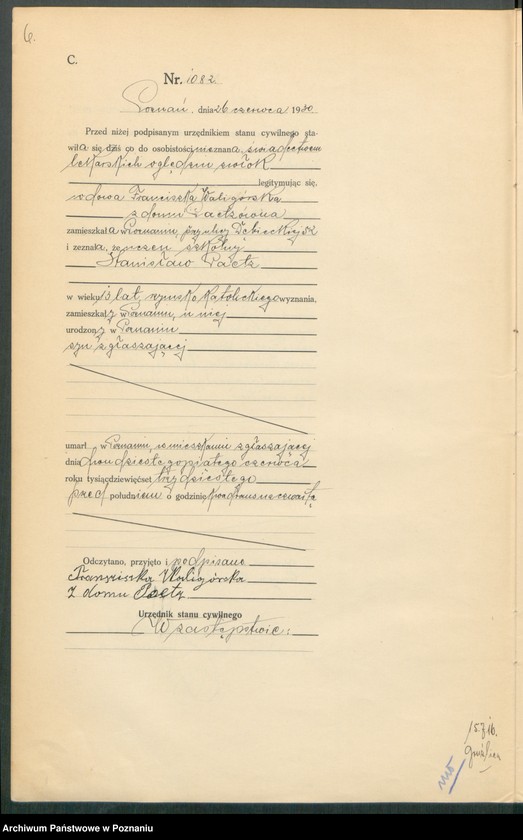 6.
C.
Nr. 1082
Poznań, dnia 26 czerwca 1930
Przed niżej podpisanym urzędnikiem stanu cywilnego sta-
wiła się dziś co do osobistości nieznana, świadectwem
lekarskich oględzin zwłok
legitymując się,
wdowa Franciszka Waligórska
z domu Paetzówna
zamieszkała w Poznaniu, przy ulicy Dębieckiej
i zeznała, że uczeń szkolny
Stanisław Paetz
w wieku 13 lat, rzymsko katolickiego wyznania,
zamieszkały w Poznaniu, u niej
urodzony w Poznaniu
syn zgłaszającej
umarł w Poznaniu, w mieszkaniu zgłaszającej
dnia dwudziestego piątego czerwca
roku tysiącdziewięćset trzydziestego
przed południem o godzinie kwadrans na czwartą
Odczytano, przyjęto i podpisano
Franciszka Waligórska
z domu Paetz
Urzędnik stanu cywilnego
W zastępstwie:
Archiwum Państwowe w Poznaniu